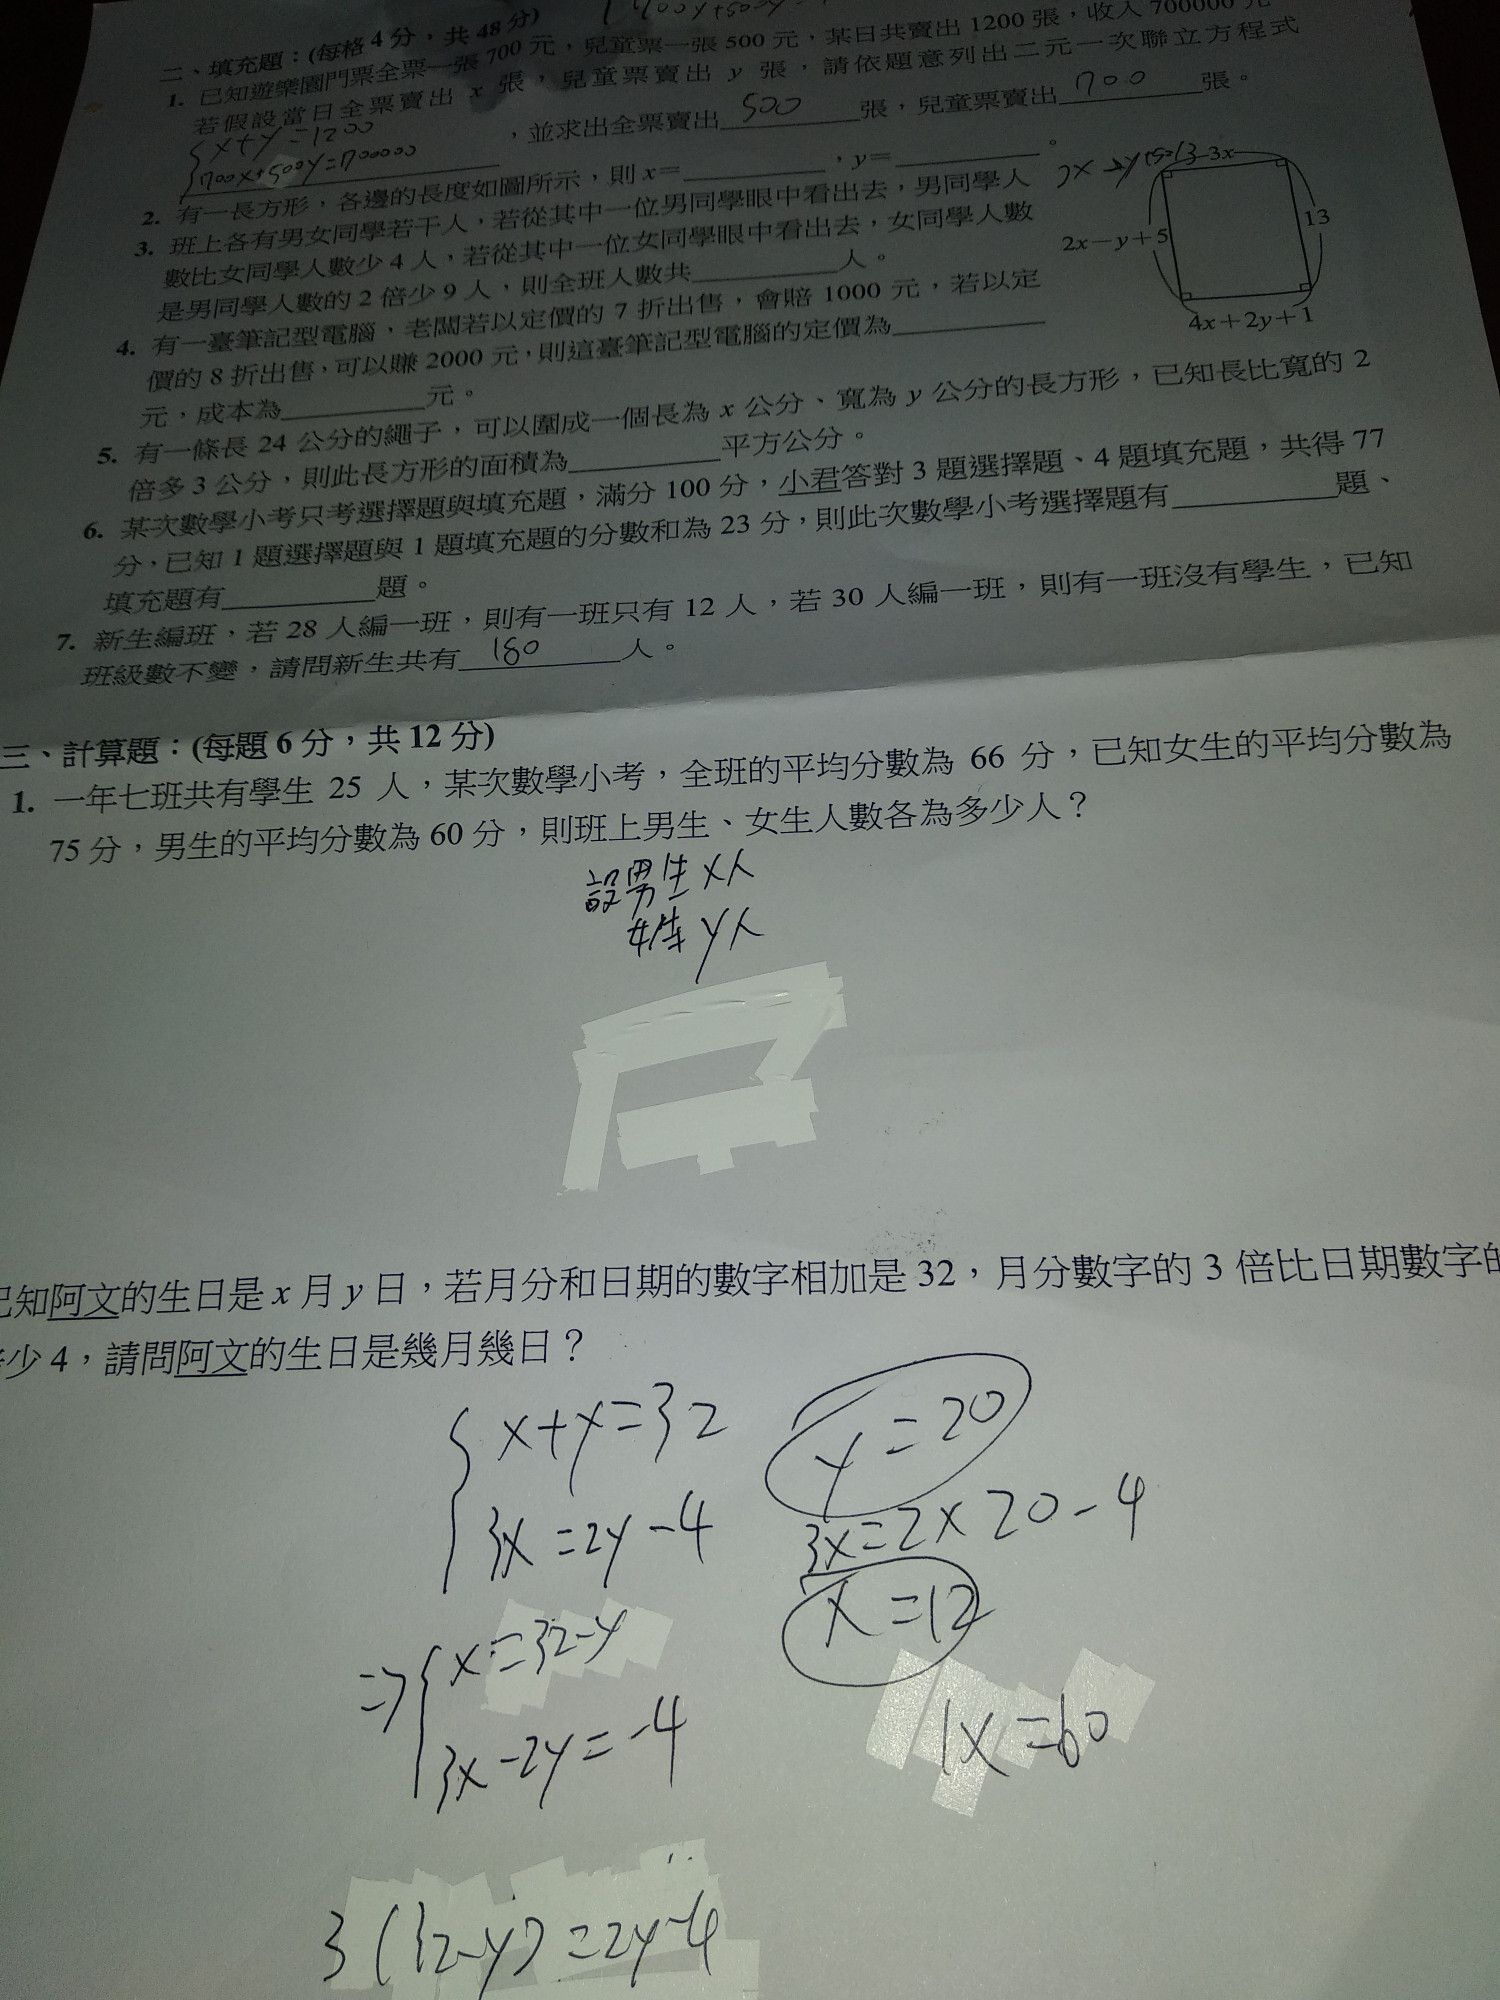 二、填充題：(每格 4 分，共 48 分)
1. 已知遊樂園門票全票一張 700 元，兒童票一張 500 元，某日共賣出 1200 張，收入 700000 元
若假設當日全票賣出 x 張，兒童票賣出 y 張，請依題意列出二元一次聯立方程式
x+y=1200
700x+500y=700000
，並求出全票賣出 500 張，兒童票賣出 700 張。
2. 有一長方形，各邊的長度如圖所示，則 x= ，y= 。
3. 班上各有男女同學若干人，若從其中一位男同學眼中看出去，男同學人
數比女同學人數少 4 人，若從其中一位女同學眼中看出去，女同學人數
是男同學人數的 2 倍少 9 人，則全班人數共 人。
4. 有一臺筆記型電腦，老闆若以定價的 7 折出售，會賠 1000 元，若以定
價的 8 折出售，可以賺 2000 元，則這臺筆記型電腦的定價為
元，成本為 元。
13-3x
13
2x-y+5
4x+2y+1
5. 有一條長 24 公分的繩子，可以圍成一個長為 x 公分、寬為 y 公分的長方形，已知長比寬的 2
倍多 3 公分，則此長方形的面積為 平方公分。
6. 某次數學小考只考選擇題與填充題，滿分 100 分，小君答對 3 題選擇題、4 題填充題，共得 77
分，已知 1 題選擇題與 1 題填充題的分數和為 23 分，則此次數學小考選擇題有 題、
填充題有 題。
7. 新生編班，若 28 人編一班，則有一班只有 12 人，若 30 人編一班，則有一班沒有學生，已知
班級數不變，請問新生共有 180 人。
三、計算題：(每題 6 分，共 12 分)
1. 一年七班共有學生 25 人，某次數學小考，全班的平均分數為 66 分，已知女生的平均分數為
75 分，男生的平均分數為 60 分，則班上男生、女生人數各為多少人？
設男生 x人
女生 y人
已知阿文的生日是 x 月 y 日，若月分和日期的數字相加是 32，月分數字的 3 倍比日期數字的
少 4，請問阿文的生日是幾月幾日？
x+y=32
3x=2y-4
⇒ x=32-y
3x-2y=-4
3(32-y)=2y-4
y=20
3x=2×20-4
x=12
1x=60